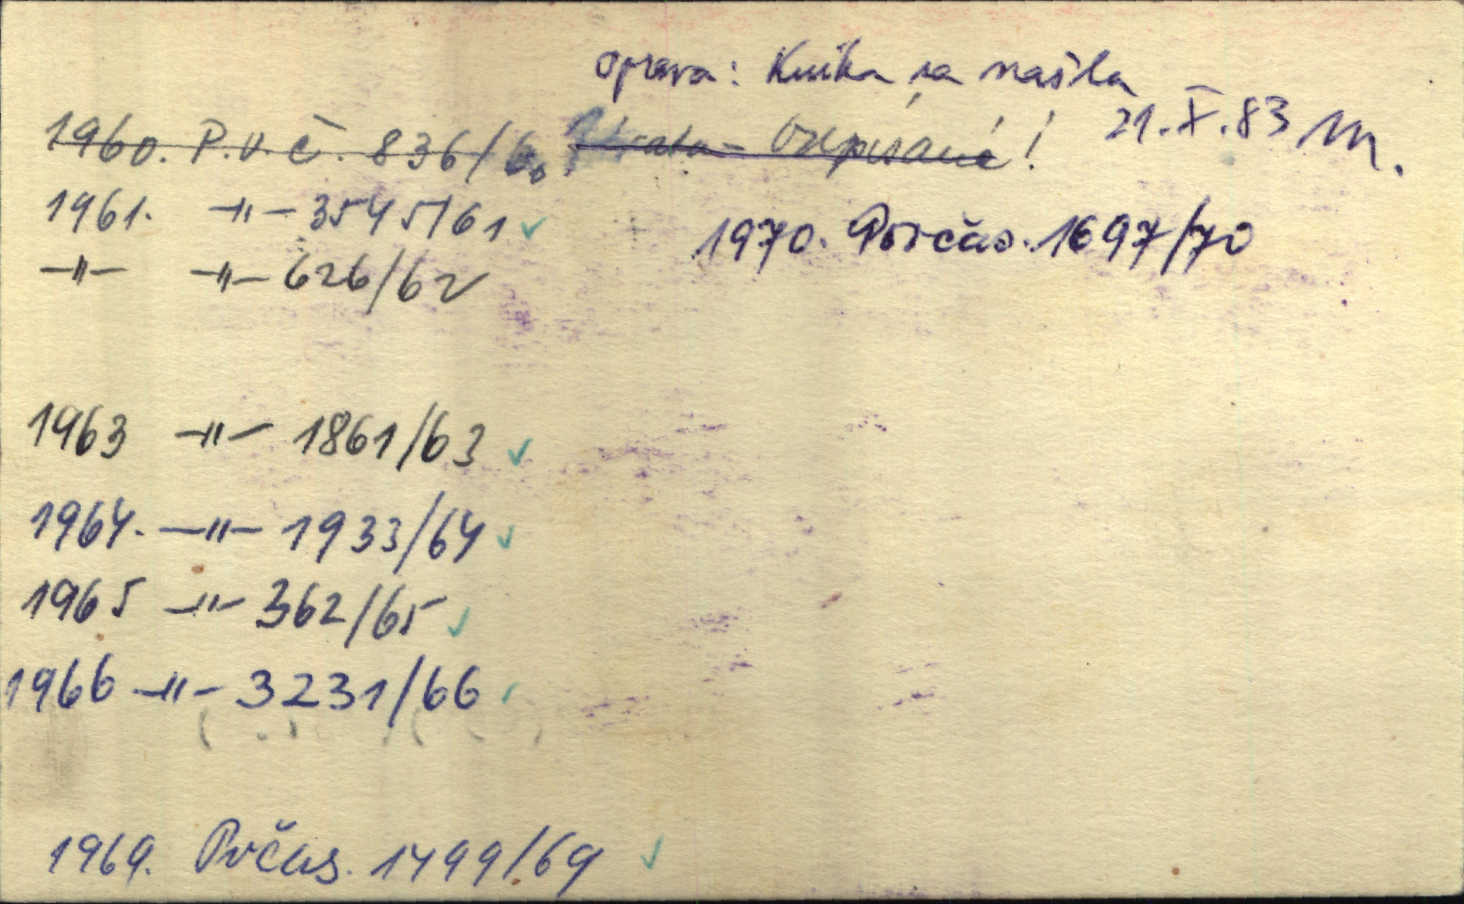 oprava: Kniha sa našla
21.X.83 M.
1960. P.v.č. 836/60 Strata - Odpísané!
1961. -"- 3545/61 ✓
-"- -"- 626/62
1970. Pov čas. 1697/70
1963 -"- 1861/63 ✓
1964. -"- 1933/64 ✓
1965 -"- 362/65 ✓
1966 -"- 3231/66 ✓
1969. Pv čas. 1499/69 ✓